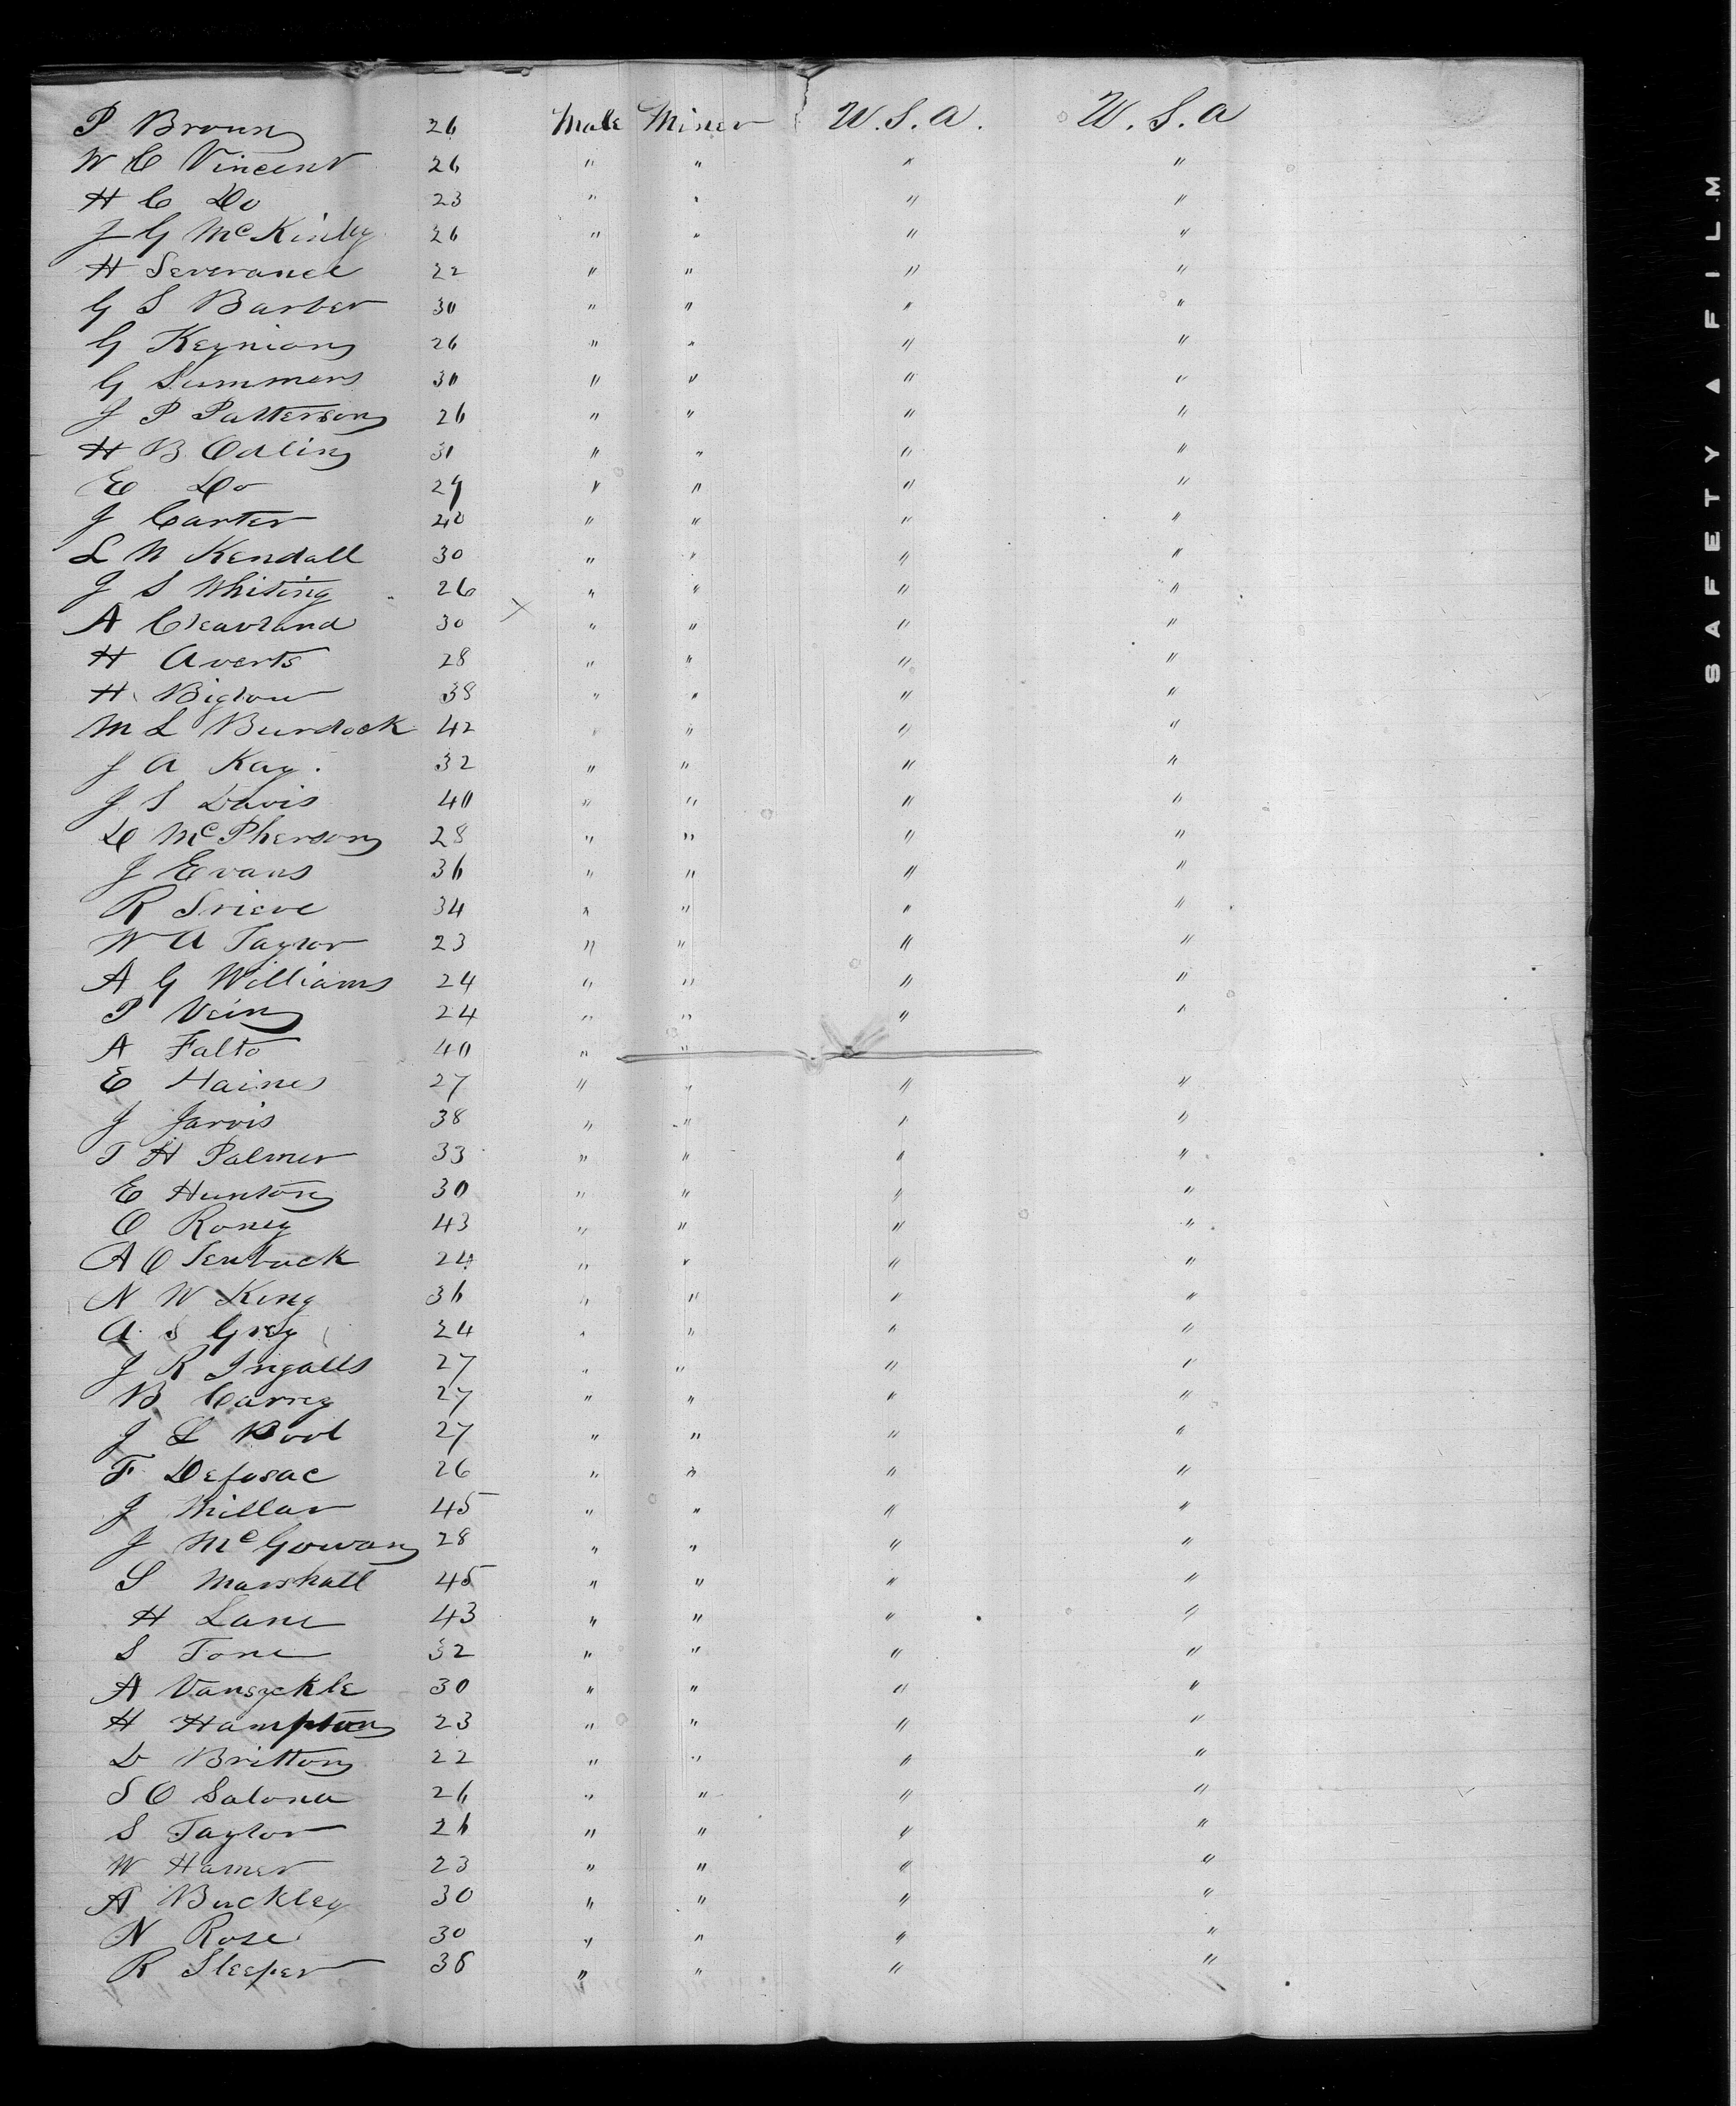 P Brown 26 Male Miner U.S.A. U.S.A
W C Vincent 26 " " " "
H C Do 23 " " " "
J G McKinley 26 " " " "
H Severance 22 " " " "
G S Barber 30 " " " "
G Keynion 26 " " " "
G Summers 30 " " " "
J P Patterson 26 " " " "
H B Odlin 31 " " " "
E Do 29 " " " "
J Carter 40 " " " "
L N Kendall 30 " " " "
J S Whiting 26 " " " "
A Cleavland 30 × " " " "
H Averts 28 " " " "
H Biglow 38 " " " "
M L Burdock 42 " " " "
J A Kay. 32 " " " "
J S Davis 40 " " " "
D McPherson 28 " " " "
J Evans 36 " " " "
R Grieve 34 " " " "
W A Taylor 23 " " " "
A G Williams 24 " " " "
P Vein 24 " " " "
A Falto 40 " "
E Haines 27 " " " "
J Jarvis 38 " " " "
T H Palmer 33 " " " "
E Hunton 30 " " " "
O Roney 43 " " " "
A O 24 " " " "
N W King 36 " " " "
A. S Grey 24 " " " "
J R Ingalls 27 " " " "
B Carrey 27 " " " "
J L Pool 27 " " " "
F Defosac 26 " " " "
J Millar 45 " " " "
J McGowan 28 " " " "
S Marshall 45 " " " "
H Lane 43 " " " "
S Tone 32 " " " "
A Vansyckle 30 " " " "
H Hampton 23 " " " "
D Britton 22 " " " "
S O Salona 26 " " " "
S Taylor 26 " " " "
W Hamer 23 " " " "
A Buckley 30 " " " "
N Rose 30 " " " "
R Sleeper 38 " " " "
SAFETY ▲ FILM